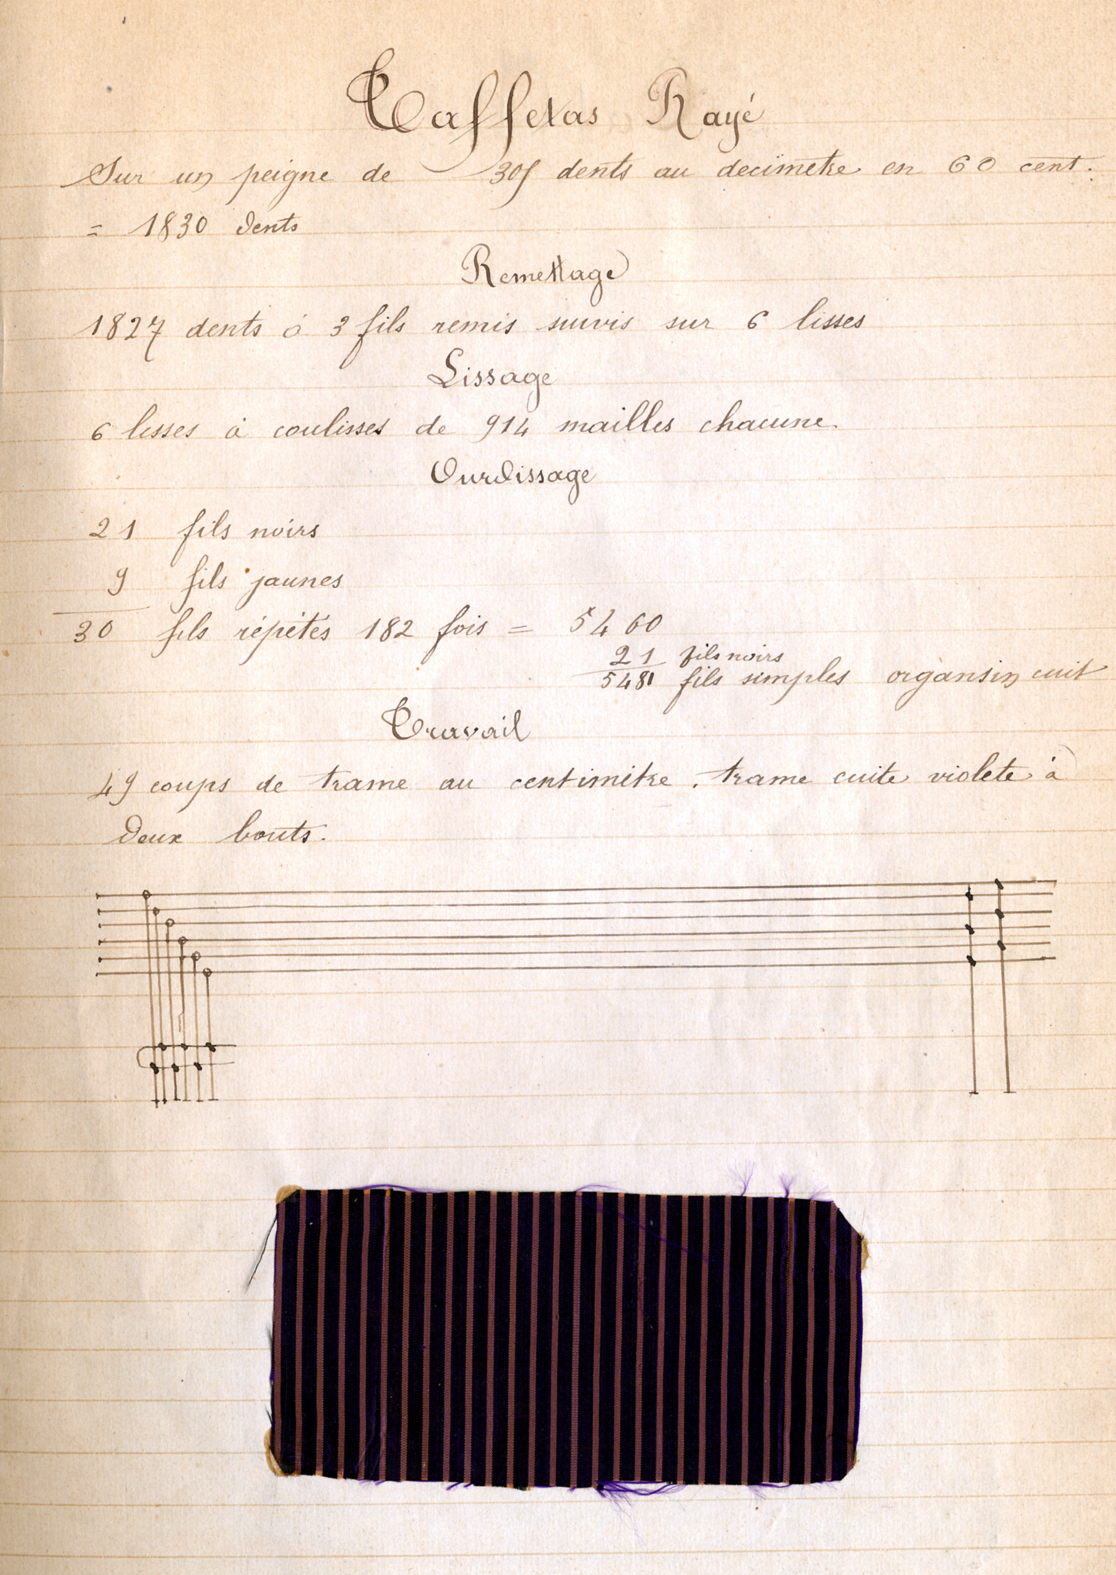 Taffetas Rayé
Sur un peigne de 305 dents au decimetre en 60 cent.
= 1830 dents
Remettage
1827 dents à 3 fils remis suivis sur 6 lisses
Lissage
6 lisses à coulisses de 914 mailles chacune.
Ourdissage
21 fils noirs
9 fils jaunes
30 fils répétés 182 fois = 5460
21 fils noirs
5481 fils simples organsin cuit
Travail
49 coups de trame au centimètre. trame cuite violete à
deux bouts.